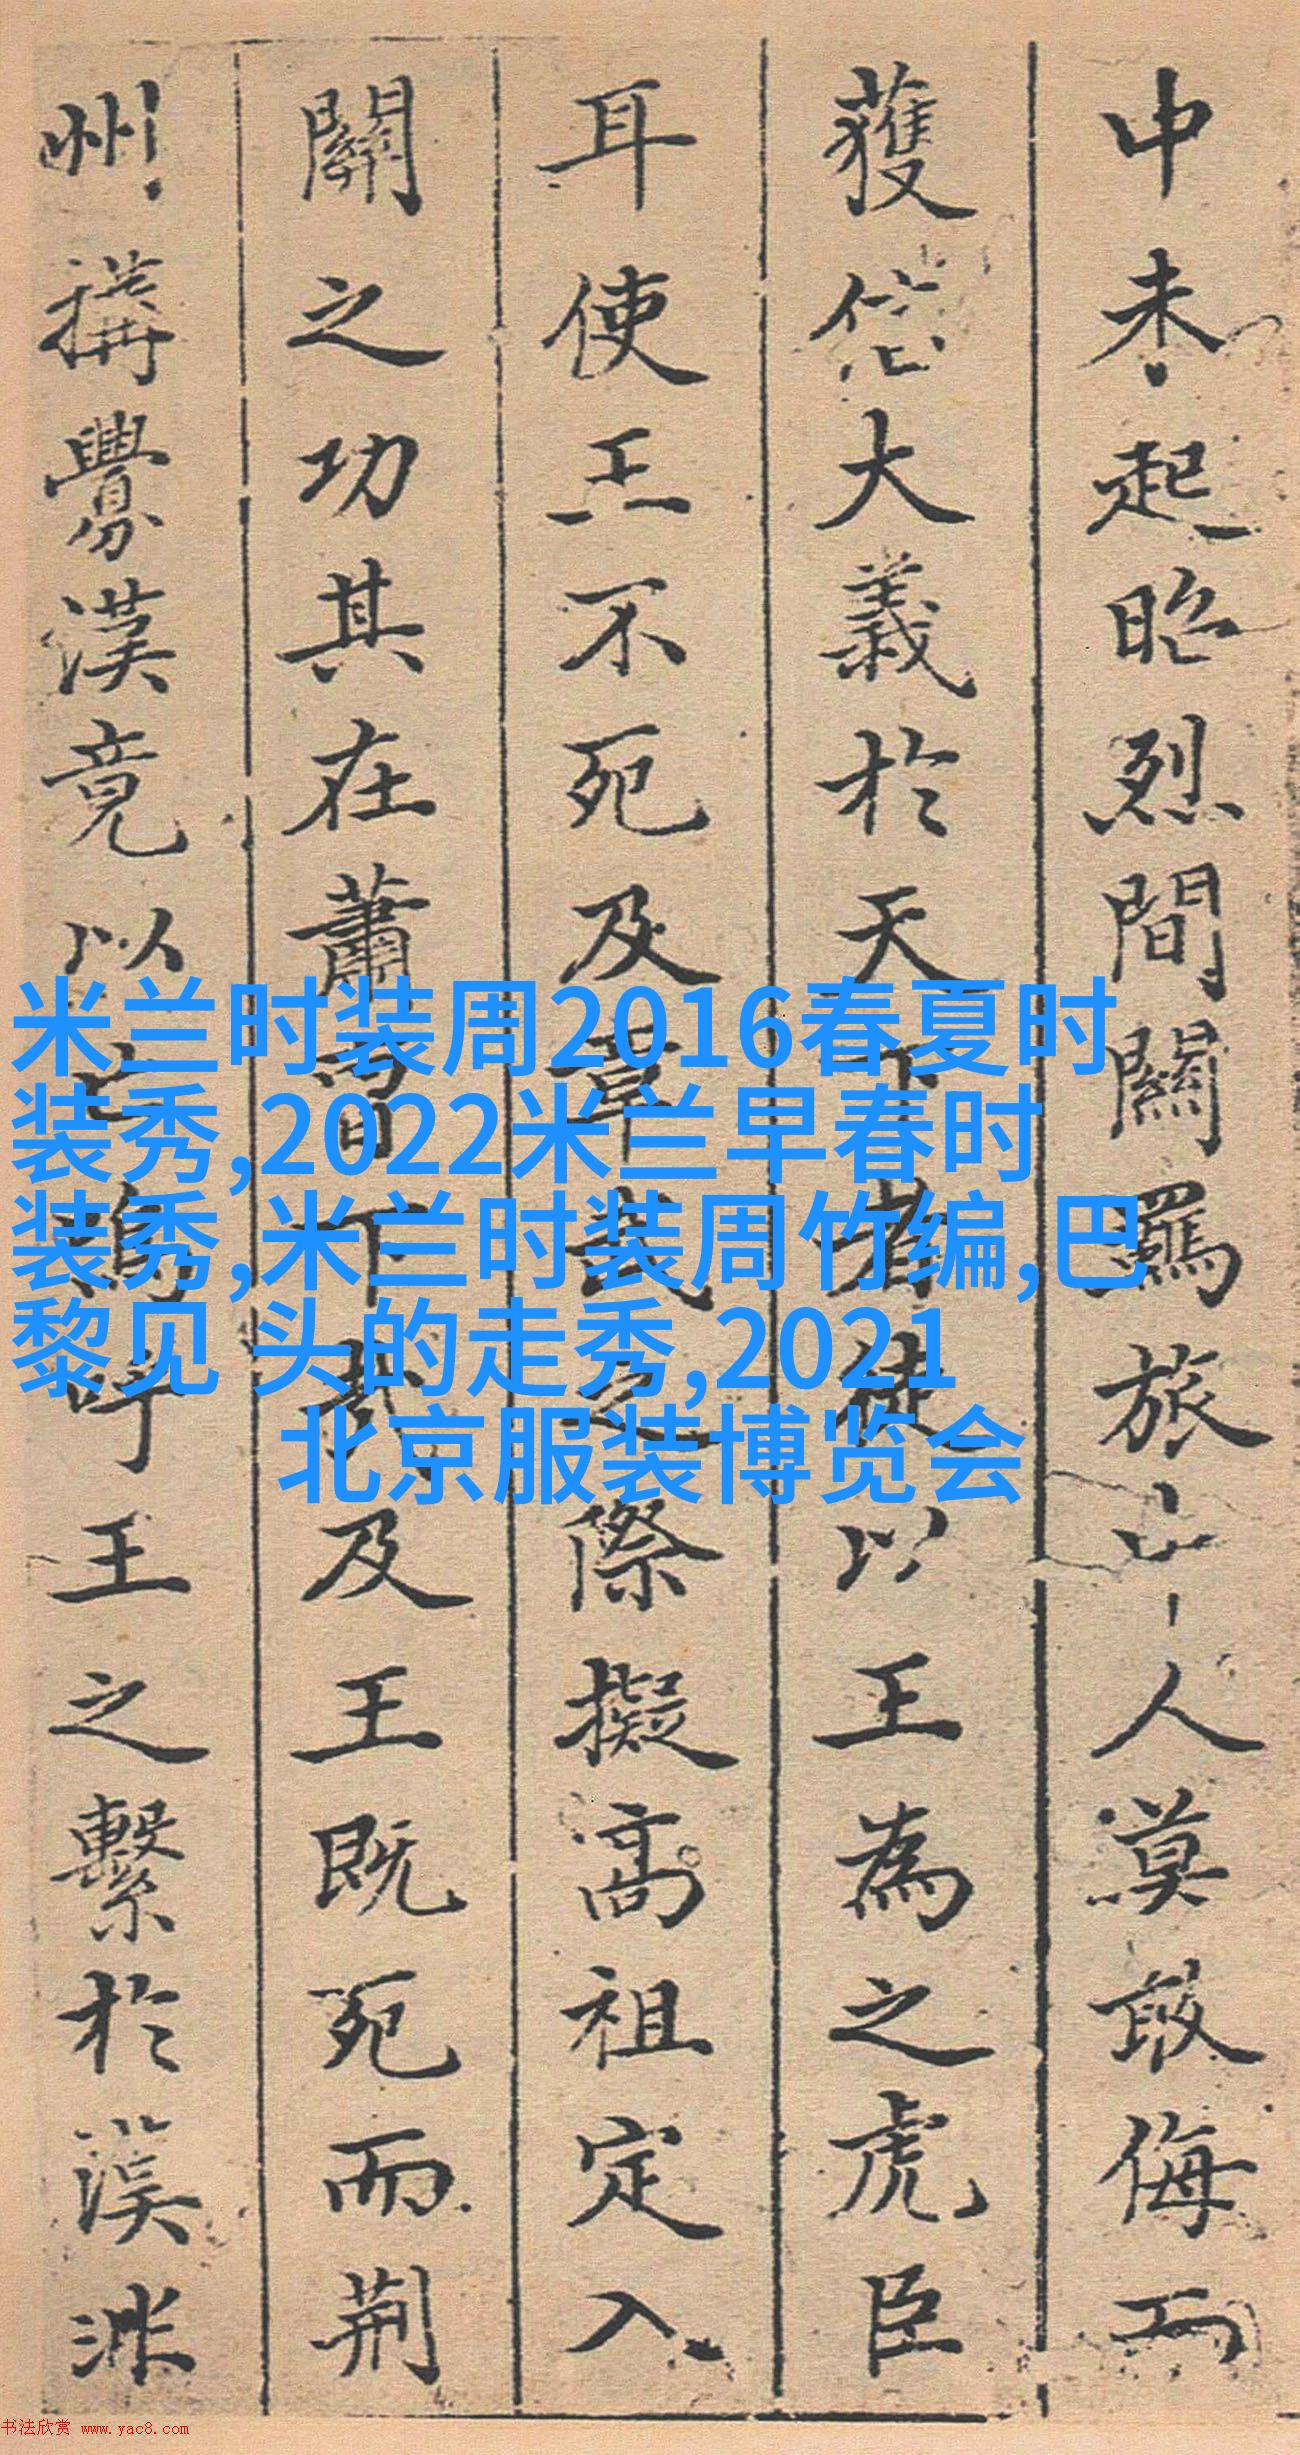 中未起昭烈間關羈旅人莫敢侮而
獲信大義於天下者徒以王為之虎臣
耳使王不死及章武之際擬高祖定入
關之功其在蕭曹下哉及王既死而荊
州搆釁漢竟以亡嗚呼王之繫於漢
米兰时装周2016春夏时
装秀,2022米兰早春时
装秀,米兰时装周竹编,巴
黎见 头的走秀,2021
北京服装博览会
书法欣赏 www.yac8.com